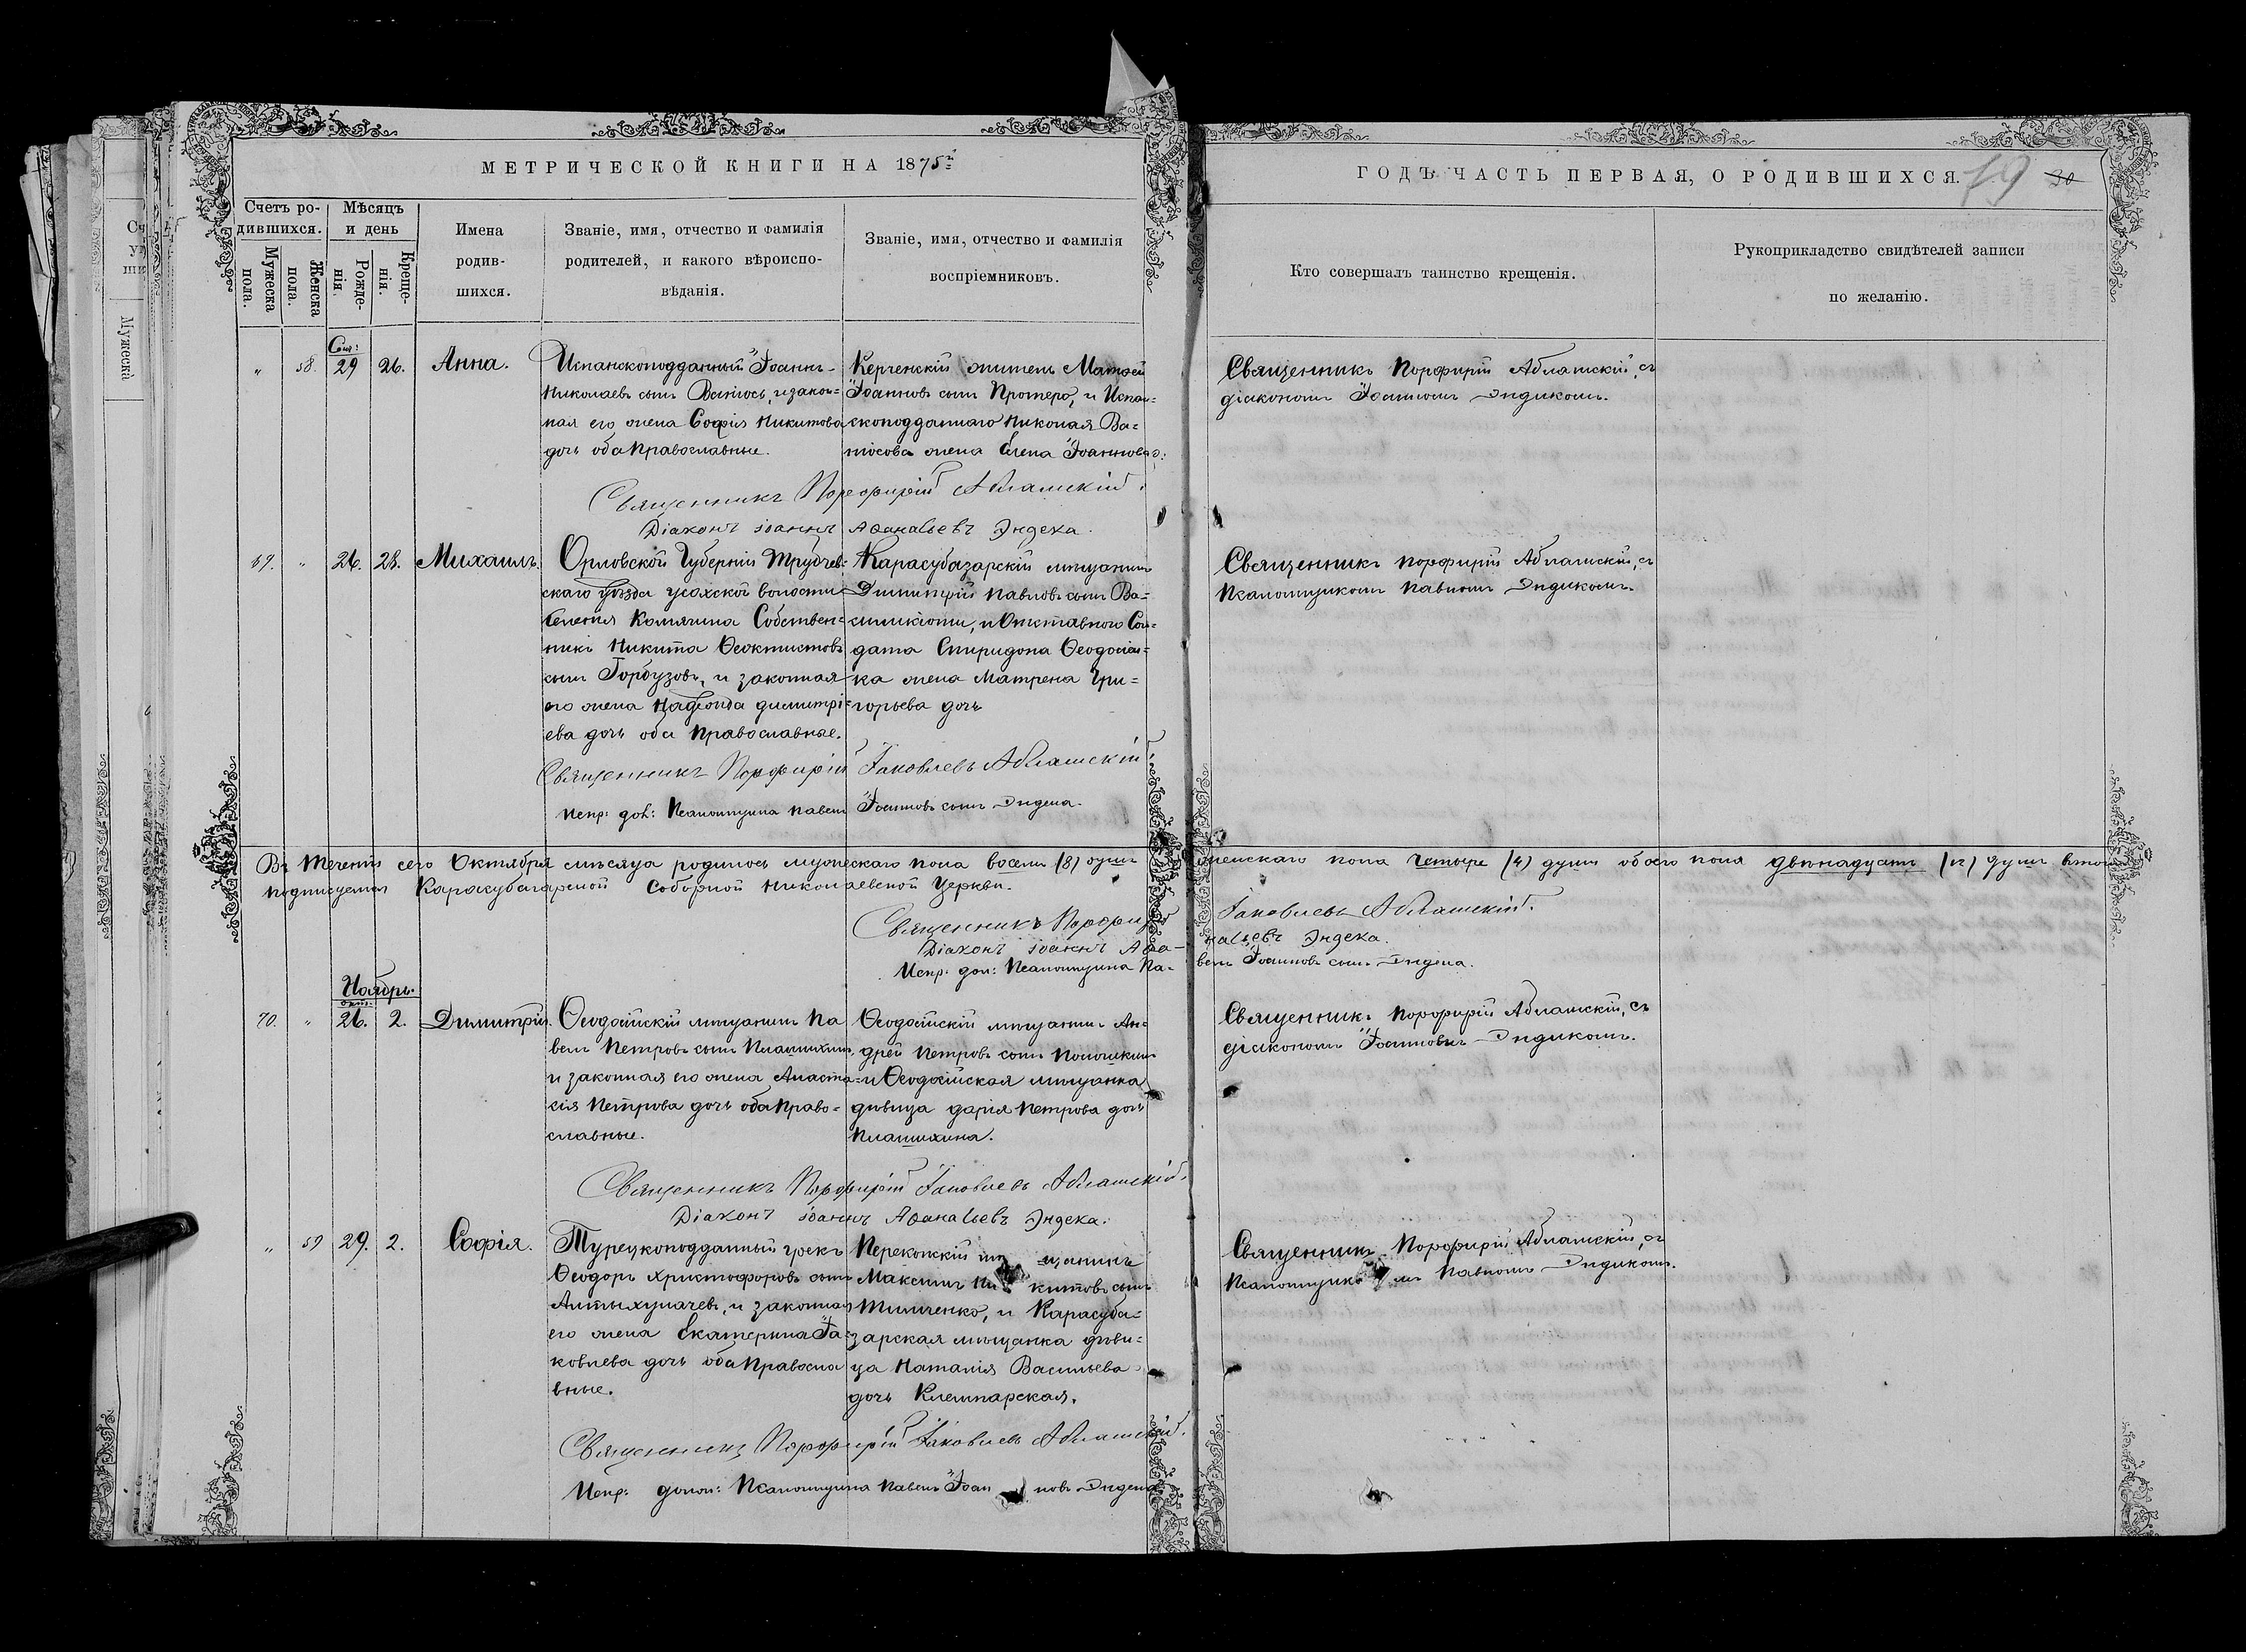 МЕТРИЧЕСКОЙ КНИГИ НА 1875й
ГОДЪ ЧАСТЬ ПЕРВАЯ, О РОДИВШИХСЯ.
19 30
Счетъ ро-
дившихся.
Мужеска
пола.
Женска
пола.
Мѣсяцъ
и день
Рожде-
нія.
Креще-
нія.
Имена
родив-
шихся.
Званіе, имя, отчество и фамилія
родителей, и какого вѣроиспо-
вѣданія.
Званіе, имя, отчество и фамилія
воспріемниковъ.
Кто совершалъ таинство крещенія.
Рукоприкладство свидѣтелей записи
по желанію.
„ 58. 29 26. Анна.
Испанскоподданный Іоаннъ
Николаевъ сынъ и закон=
ная его жена Софія Никитова
дочь оба православные.
Керченскій житель Матѳей
Іоанновъ сынъ Протеро, и Испан=
скоподданнаго Николая Ва=
тосова жена Елена Іоаннова д:
Священникъ Порфирій Аблашскій, съ
діакономъ Іоанномъ Эндекомъ.
Священникъ Порфирій Аблашскій.
Діаконъ Іоаннъ Аѳанасьевъ Эндека.
69. „ 26. 28. Михаилъ.
Орловской Губерніи Трубчев=
скаго уѣзда усохской волости
селенія Калячина Собствен=
никъ Никита Ѳеоктистовъ
сынъ Горбузовъ, и законная
его жена димитрі=
ева дочь оба православные.
Карасубазарскій мѣщанинъ
Димитрій Павловъ сынъ Ва=
силькіоти, и Отставного Сол=
дата Спиридона Ѳеодосіен=
ка жена Матрена Гри=
горьева дочь
Священникъ Порфирій Аблашскій, съ
Псаломщикомъ Павломъ Эндекомъ.
Священникъ Порфирій Іаковлевъ Аблашскій.
Испр: дол: Псаломщика Павелъ Іоанновъ сынъ Эндека.
Въ теченіи сего Октября мѣсяца родилось мужескаго пола восемь (8) душъ женскаго пола четыре (4) души обоего пола двѣнадцать (12) душъ въ томъ
подписуемся Карасубазарской Соборной Николаевской Церкви.
Священникъ Порфирій Іаковлевъ Аблашскій.
Діаконъ Іоаннъ Аѳанасьевъ Эндека.
Испр: дол: Псаломщика Павелъ Іоанновъ сынъ Эндека.
Ноябрь.
окт.
70. „ 26. 2. Димитрій.
Ѳеодосійскій мѣщанинъ Па
велъ Петровъ сынъ Плашихинъ,
и законная его жена Анаста=
сія Петрова дочь оба право=
славные.
Ѳеодосійскій мѣщанинъ Ан=
дрей Петровъ сынъ
и Ѳеодосійская мѣщанка
дѣвица дарія Петрова дочь
Плашихина.
Священникъ Порфирій Аблашскій, съ
діакономъ Іоанномъ Эндекомъ.
Священникъ Порфирій Іаковлевъ Аблашскій.
Діаконъ Іоаннъ Аѳанасьевъ Эндека.
„ 59 29. 2. Софія.
Турецкоподданный грекъ
Ѳеодоръ Христофоровъ сынъ
Алтыхупачевъ, и законная
его жена Екатерина Іа=
ковлева дочь оба Правосла
вные.
Перекопскій мѣщанинъ
Максимъ Никитовъ сынъ
Тимченко, и Карасуба=
зарская мѣщанка дѣви=
ца Наталія Васильева
дочь Клемпарская.
Священникъ Порфирій Аблашскій, съ
Псаломщикомъ Павломъ Эндекомъ.
Священникъ Порфирій Іаковлевъ Аблашскій.
Испр: долж: Псаломщика Павелъ Іоанновъ Эндека